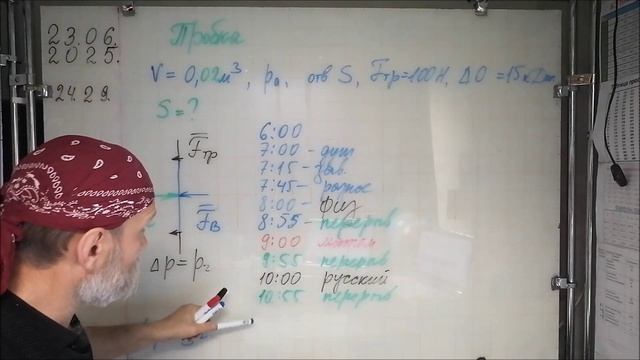 23.06.
2025.
24.29.
Пробка
V = 0,02м³, p₀, отв S, Fтр=100Н, ΔQ =15кДж
S = ?
Fтр
Fв
Δp = p₂
6:00
7:00 - душ
7:15 - завт
7:45 -
8:00 - физ
8:55 - перерыв
9:00 матем
9:55 перерыв
10:00 русский
10:55 перерыв